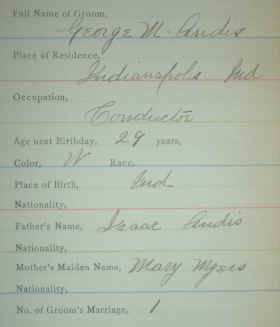 Full Name of Groom,
George M. Andis
Place of Residence,
Indianapolis Ind
Occupation,
Conductor
Age next Birthday, 29 years,
Color, W Race,
Place of Birth, Ind
Nationality,
Father's Name, Isaac Andis
Nationality,
Mother's Maiden Name, Mary Myers
Nationality,
No. of Groom's Marriage, 1